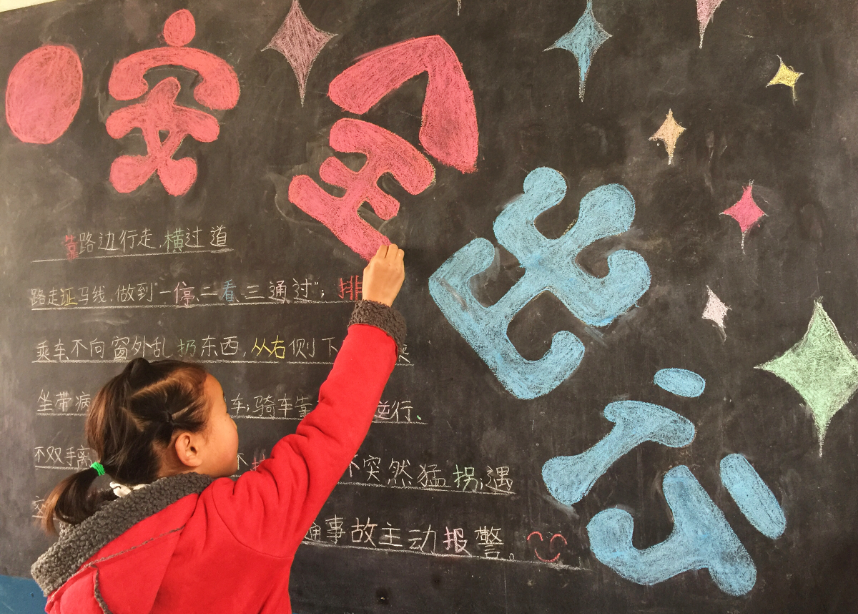 安全
靠路边行走,横过道
路走斑马线,做到"一停、二看、三通过";排
乘车不向窗外乱扔东西,从右侧下
坐带病 车;骑车靠 逆行、
不双手离 不突然猛拐;遇
交 通事故主动报警。